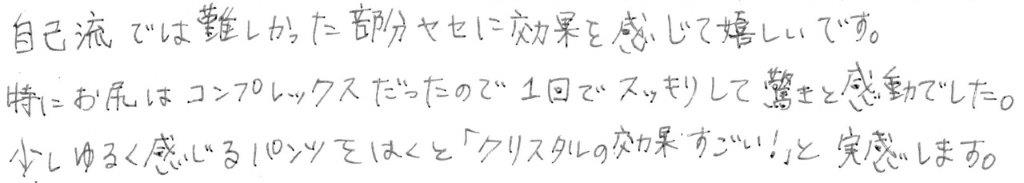 自己流では難しかった部分ヤセに効果を感じて嬉しいです。
特にお尻はコンプレックスだったので1回でスッキリして驚きと感動でした。
少しゆるく感じるパンツをはくと「クリスタルの効果すごい!」と実感します。